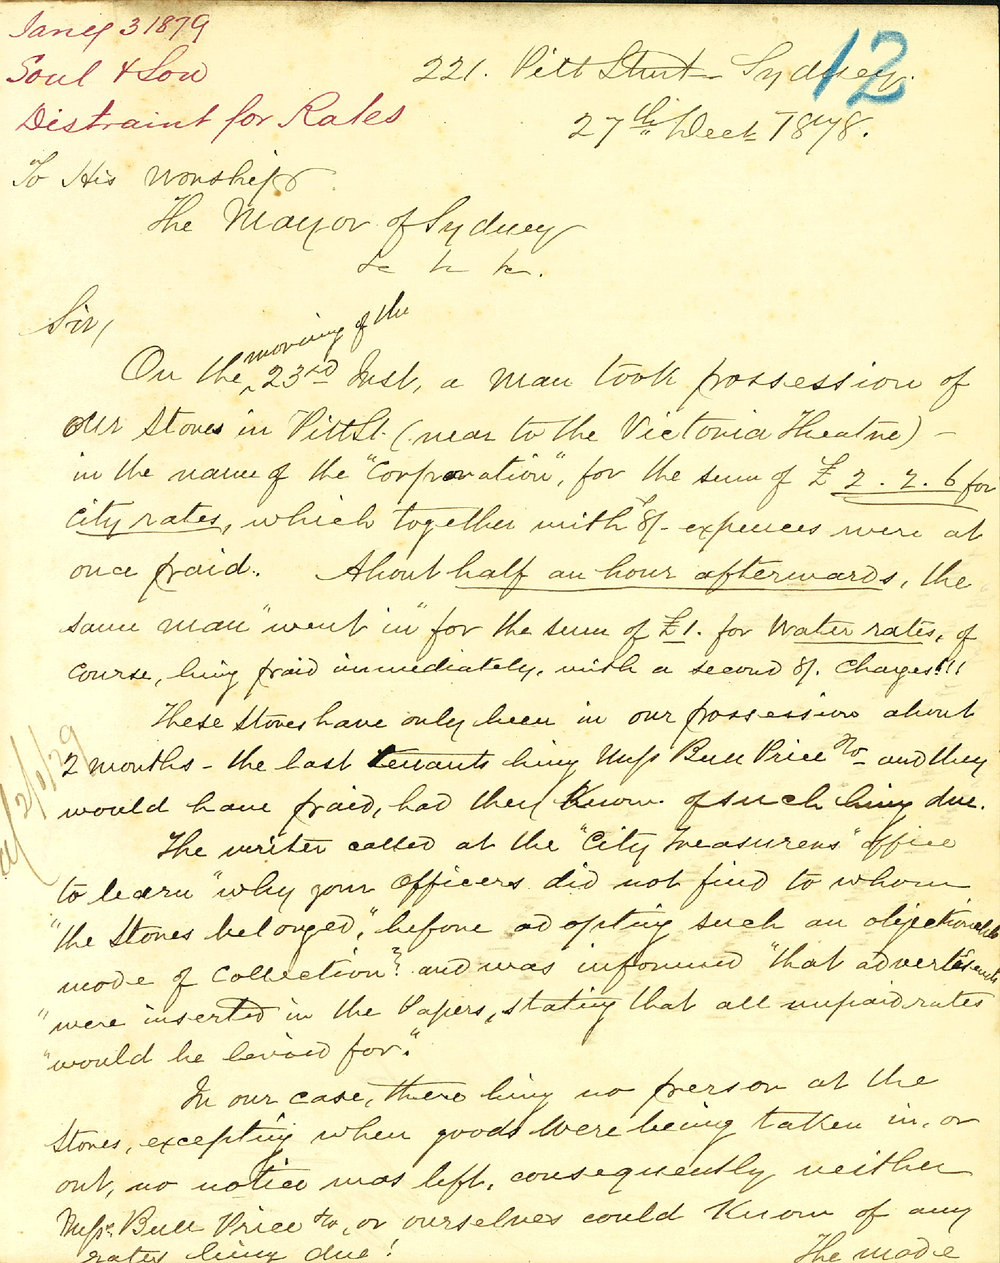 Jany 3 1879
Soul & Son
Distraint for Rates
12
221. Pitt Street Sydney.
27th Decr 1878.
To His Worship
The Mayor of Sydney
&c &c &c.
Sir,
On the morning of the 23rd Inst, a man took possession of
our Stores in Pitt St. (near to the Victoria Theatre) -
in the name of the "Corporation", for the sum of £2.2.6 for
City rates, which together with 8/- expences were at
once paid. About half an hour afterwards, the
same man "went in" for the sum of £1. for Water rates, of
course, being paid immediately, with a second 8/. charges!!!
These Stores have only been in our possession about
2 months - the last tenants being Messrs Bull Price & Co and they
would have paid, had they known of such being due.
The writer called at the "City Treasurers" office
to learn "why your officers did not find to whom
"the Stores belonged," before adopting such an objectionable
mode of Collection? and was informed "that advertisements
"were inserted in the Papers, stating that all unpaid rates
"would be levied for."
In our case, there being no person at the
Stores, excepting when goods were being taken in, or
out, no notice was left, consequently neither
Messrs. Bull Price & Co, or ourselves could know of any
rates being due!
The mode